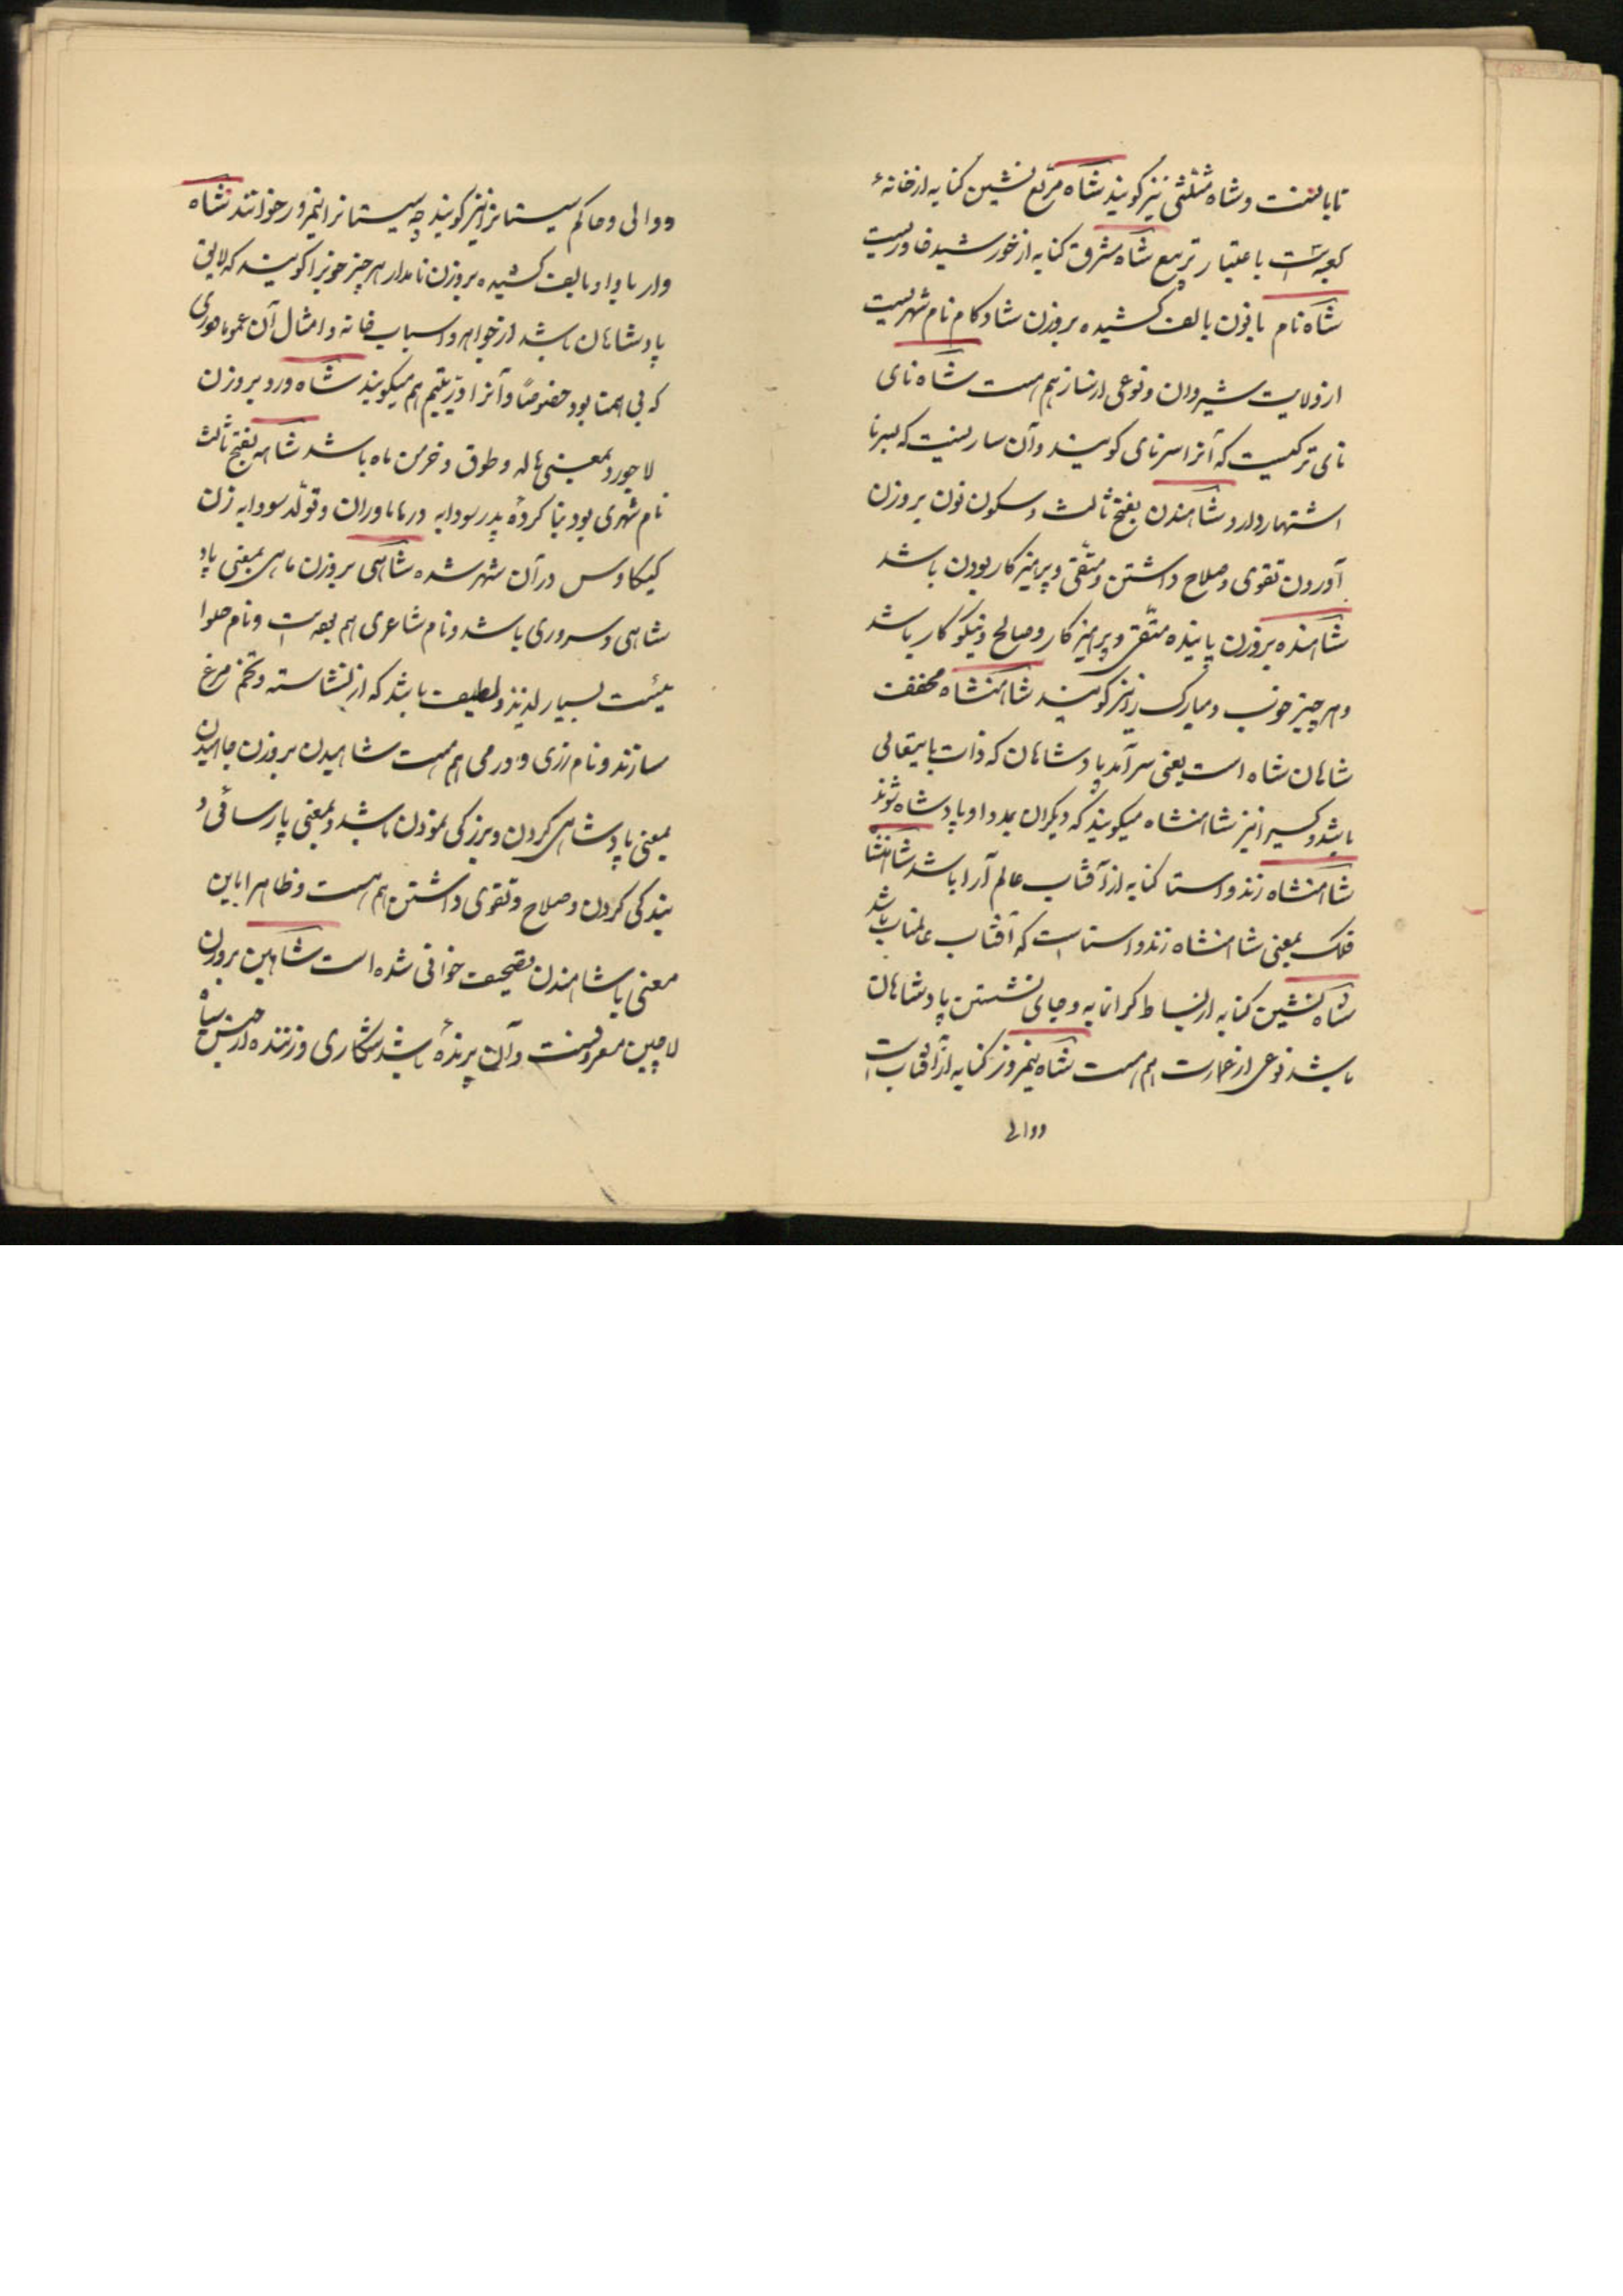 تابانست و شاه مثلثی نیز گویند شاه مربع نشین کنایه از خانهٔ
کعبه است باعتبار تربیع شاه مشرق کنایه از خورشید خاوریست
شاه نام با نون بالف کشیده بروزن شادکام نام شهریست
از ولایت شیروان و نوعی از ساز هم هست شاه نای
نای ترکیست که آنرا سرنای گویند و آن سازیست که بسرنا
اشتهار دارد شاهندن بفتح ثالث و سکون نون بروزن
آوردن تقوی و صلاح داشتن و متقی و پرهیزکار بودن باشد
شاهنده بروزن پاینده متقی و پرهیزکار و صالح و نیکوکار باشد
و هر چیز خوب و مبارک را نیز گویند شاهنشاه مخفف
شاهان شاه است یعنی سرآمد پادشاهان که ذات باریتعالی
باشد و کسیرا نیز شاهنشاه میگویند که دیگران بمدد او پادشاه شوند
شاهنشاه زند و استا کنایه از آفتاب عالم آرا باشد شاهنشاه
فلک بمعنی شاهنشاه زند و استا است که آفتاب عالمتاب باشد
شاه نشین کنایه از بساط گرانمایه و جای نشستن پادشاهان
باشد نوعی از عمارت هم هست شاه نیمروز کنایه از آفتاب است
ووالی
ووالی و حاکم سیستانرا نیز گویند چه سیستانرا نیمروز خوانند شاه
وار با واو بالف کشیده بروزن نامدار هر چیز خوبرا گویند که لایق
پادشاهان باشد از جواهر و اسباب خانه و امثال آن عموما و مروارید
که بی همتا بود خصوصًا و آنرا درّ یتیم هم میگویند شاه ورد بروزن
لاجورد بمعنی هاله و طوق و خرمن ماه باشد شاهه بفتح ثالث
نام شهری بود بنا کردهٔ پدر سودابه در هاماوران و تولد سودابه زن
کیکاوس در آن شهر شده شاهی بروزن ماهی بمعنی پاد
شاهی و سروری باشد و نام شاعری هم بوده است و نام حلوا
ئیست بسیار لذیذ و لطیف باشد که از نشاسته و تخم مرغ
سازند و نام زری و درمی هم هست شاهیدن بروزن چاهیدن
بمعنی پادشاهی کردن و بزرگی نمودن باشد و بمعنی پارسائی و
بندگی کردن و صلاح و تقوی داشتن هم هست و ظاهرا باین
معنی با شاهندن تصحیف خوانی شده است شاهین بروزن
لاچین معروفست و آن پرندهٔ باشد شکاری و زننده از جنس سیاه